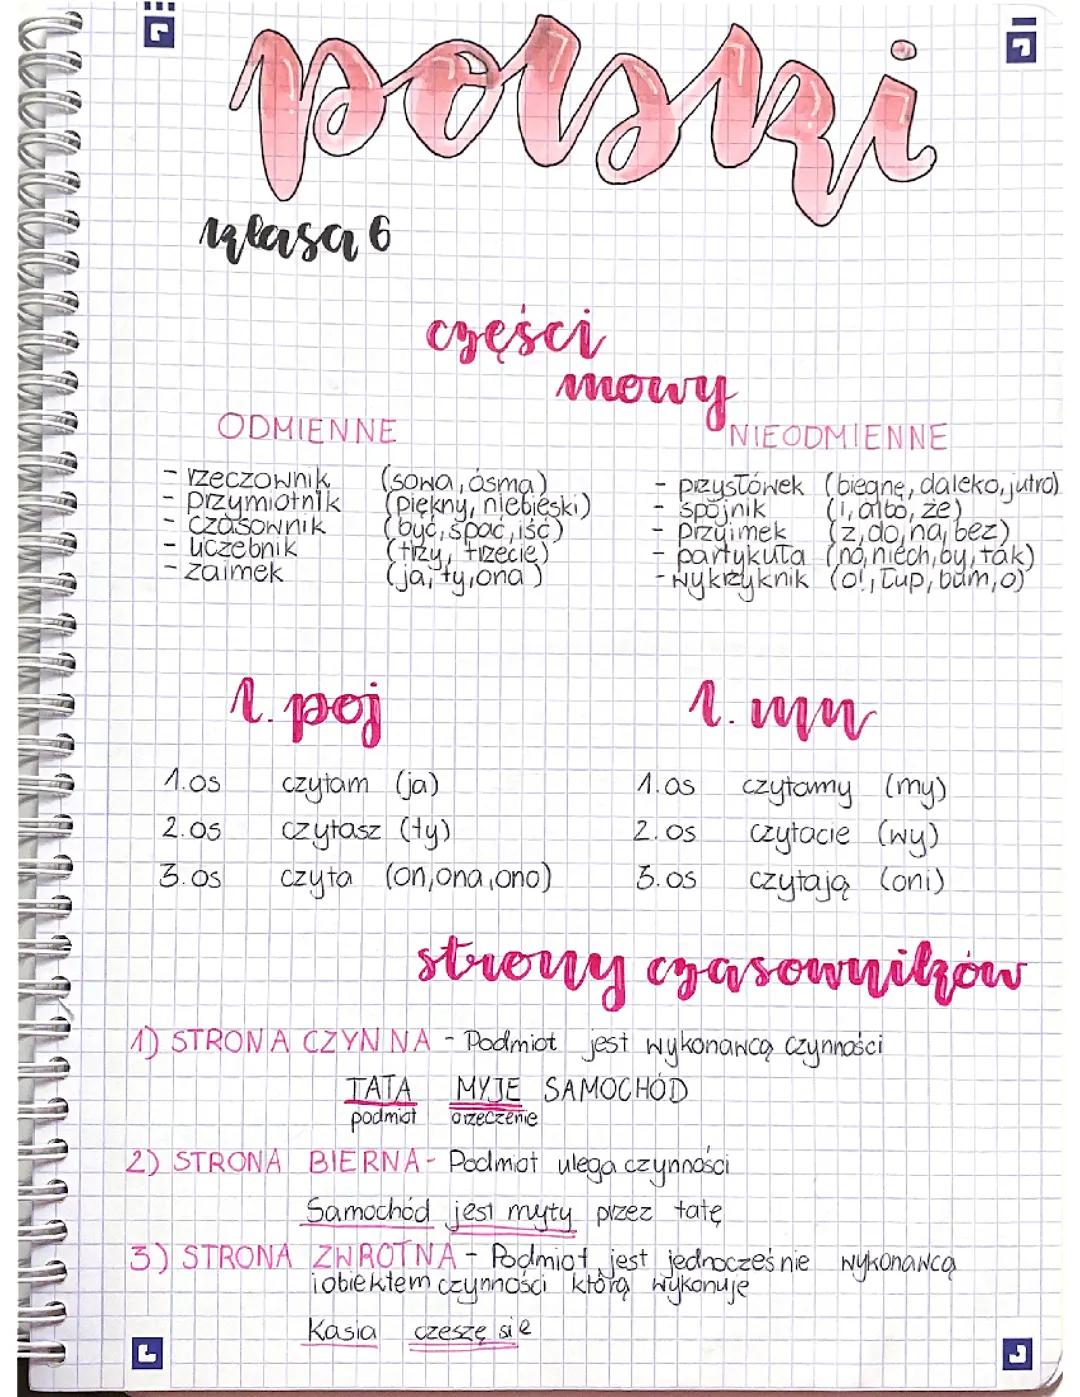 polski
klasa 6
części
mowy
ODMIENNE
NIEODMIENNE
- rzeczownik (sowa, ósma)
- przymiotnik (piękny, niebieski)
- czasownik (być, spać, iść)
- liczebnik (trzy, trzecie)
- zaimek (ja, ty, ona)
- przysłówek (biegnę, daleko, jutro)
- spójnik (i, albo, że)
- przyimek (z, do, na, bez)
- partykuła (no, niech, by, tak)
- wykrzyknik (o!, łup, bum, o)
l. poj
1.os czytam (ja)
2.os czytasz (ty)
3.os czyta (on, ona, ono)
l. mn
1.os czytamy (my)
2.os czytacie (wy)
3.os czytają (oni)
strony czasowników
1) STRONA CZYNNA - Podmiot jest wykonawcą czynności
TATA MYJE SAMOCHÓD
podmiot orzeczenie
2) STRONA BIERNA - Podmiot ulega czynności
Samochód jest myty przez tatę
3) STRONA ZWROTNA - Podmiot jest jednocześnie wykonawcą
i obiektem czynności którą wykonuje
Kasia czeszę się